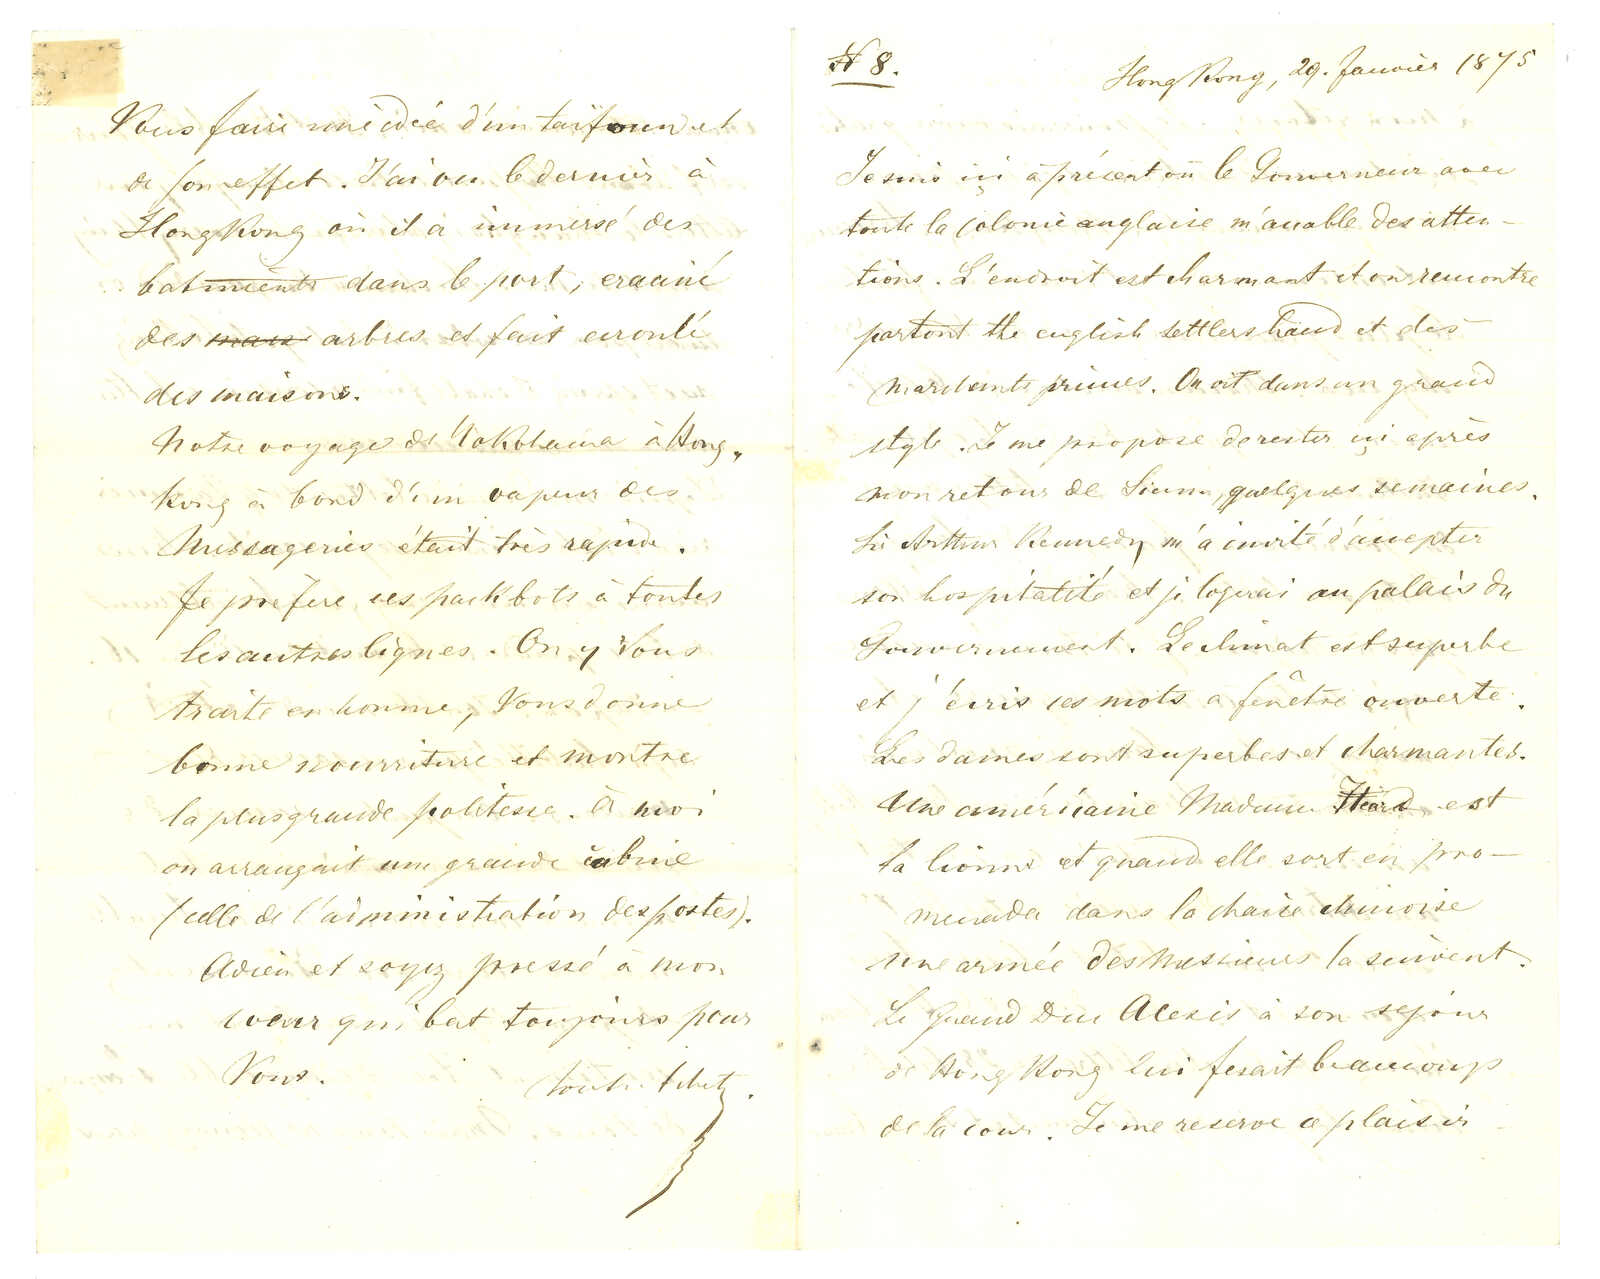 N 8.
Hong Kong, 29. Janvier 1875
Je suis içi à présent où le Gouverneur avec
toute la colonie anglaise m'accable des atten-
tions. L'endroit est charmant et on rencontre
partout the english settlers hand et des
marchants princes. On vit dans un grand
style. Je me propose de rester içi après
mon retour de Siam, quelques semaines.
Sir Arthur Kennedy m'a invité d'accepter
son hospitatité et je logerai au palais du
Gouvernement. Le climat est superbe
et j'écris ces mots a fenêtre ouverte.
Les dames sont superbes et charmantes.
Une américaine Madame Heard est
la lionne et quand elle sort en pro-
menada dans la chaise chinoise
une armée des Messieurs la suivent.
Le Grand Duc Alexis à son sejour
de Hong Kong lui fesait beaucoup
de la cour. Je me reserve ce plaisir
Vous faire une idée d'un taifoun et
de son effet. J'ai vu le dernier à
Hong Kong où il a immersé des
batiments dans le port, eraciné
des arbres et fait ecroulé
des maisons.
Notre voyage de Yokohama à Hong-
kong à bord d'un vapeur des
Messageries était très rapide.
Je préfere ces packbots à toutes
les autres lignes. On y Vous
traite en homme, Vous donne
bonne nourriture et montre
la plus grande politesse. À moi
on arrangait une grande cabine
(celle de l'administration des postes).
Adieu et soyez pressé à mon
coeur qui bat toujours pour
Vous.